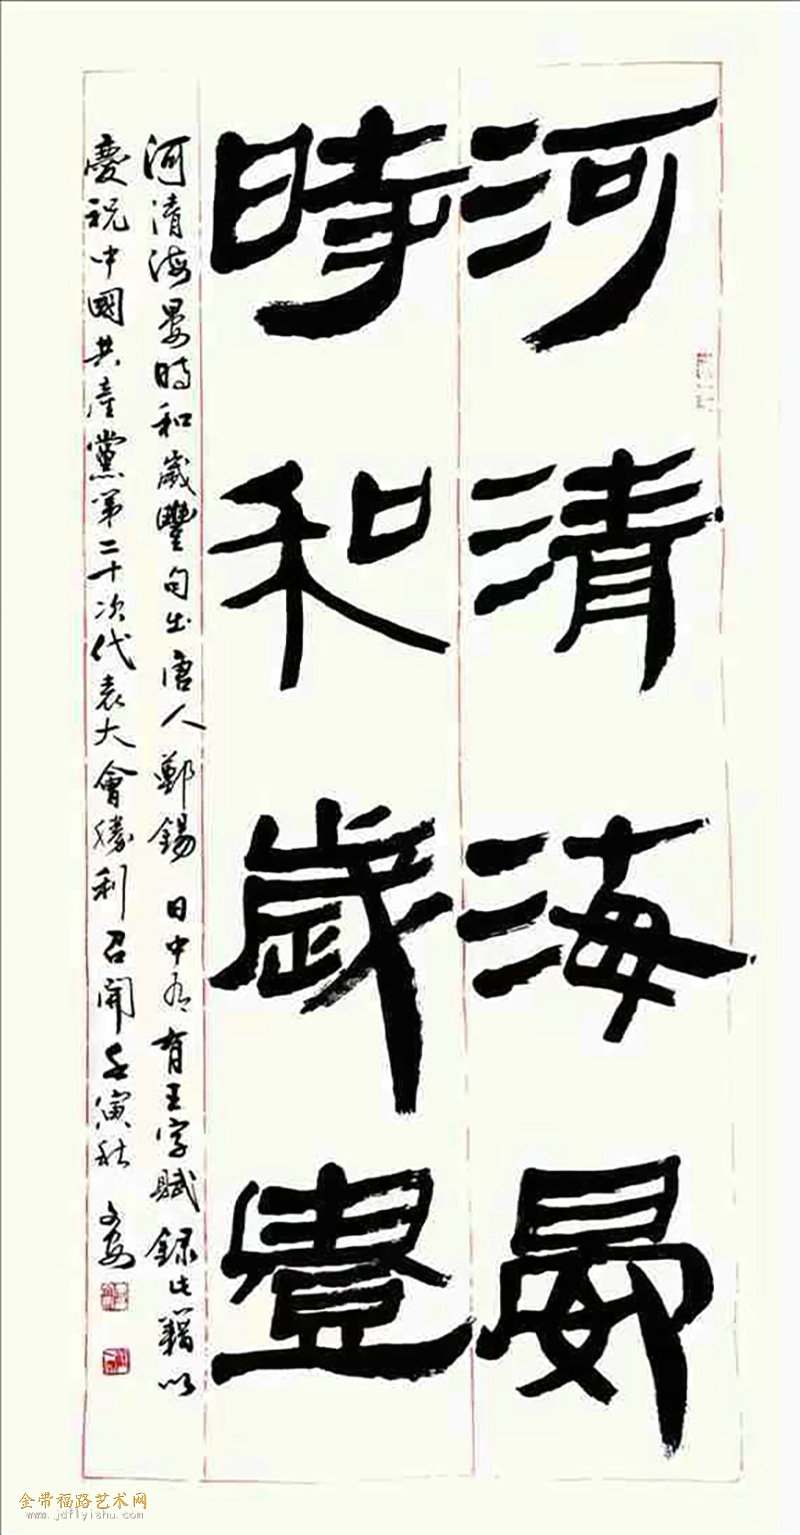 河清海晏
時和歲豐
河清海晏時和歲豐句出唐人鄭錫日中有王字賦録此籍以
慶祝中國共産黨第二十次代表大會勝利召開壬寅秋文安
金带福路艺术网
www.jdflyishu.com